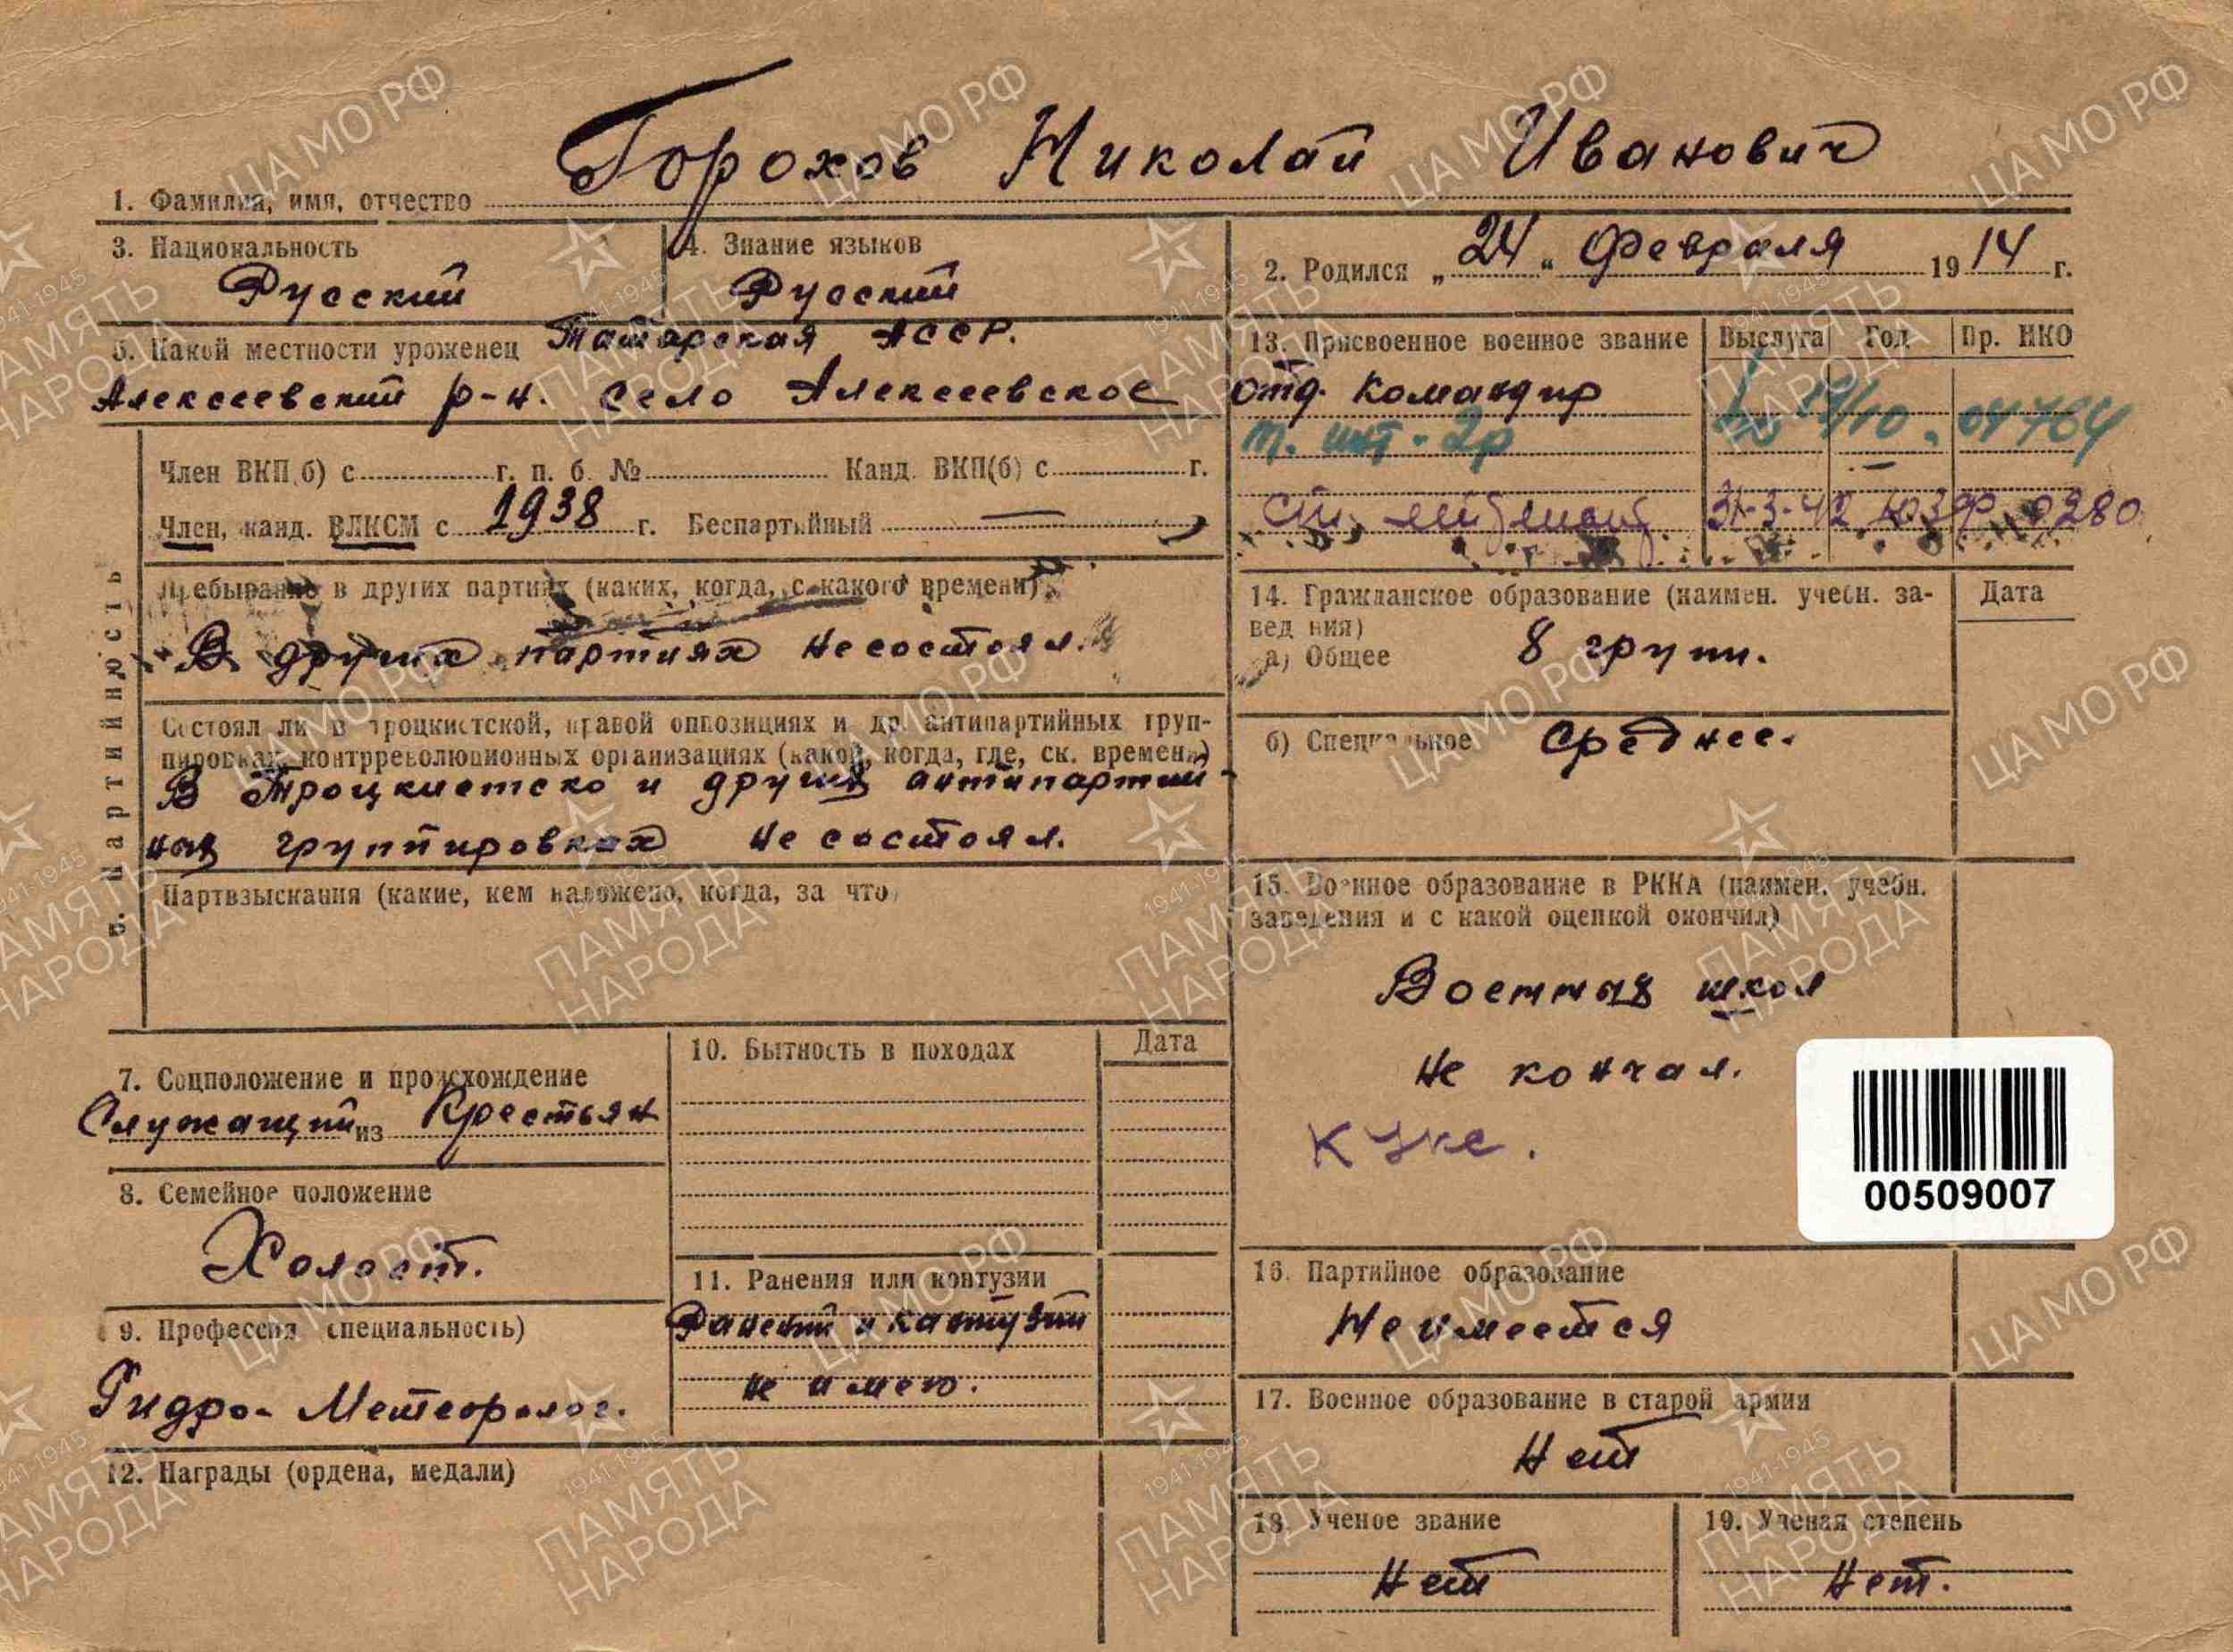 Горохов Николай Иванович
1. Фамилия, имя, отчество
3. Национальность
Русский
4. Знание языков
Русский
2. Родился „24“ Февраля 1914 г.
5. Какой местности уроженец Татарская АССР.
Алексеевский р-н. село Алексеевское
13. Присвоенное военное звание Выслуга Год Пр. НКО
отд. командир
т. инт. 2р 04764
ст. лейтенант 31-3-42 ЮЗФ 0280
6. Партийность
Член ВКП(б) с г. п. б. № Канд. ВКП(б) с г.
Член, канд. ВЛКСМ с 1938 г. Беспартийный —
Пребывание в других партиях (каких, когда, с какого времени)
В других партиях не состоял.
Состоял ли в троцкистской, правой оппозициях и др. антипартийных груп-
пировках, контрреволюционных организациях (какой, когда, где, ск. времени)
В Троцкистско и других антипартий-
ных группировках не состоял.
Партвзыскания (какие, кем наложено, когда, за что)
14. Гражданское образование (наимен. учебн. за-
ведения) Дата
а) Общее 8 групп.
б) Специальное Среднее.
15. Военное образование в РККА (наимен. учебн.
заведения и с какой оценкой окончил)
Военная школ
не кончал.
00509007
7. Соцположение и происхождение
Служащий из Крестьян
8. Семейное положение
Холост.
9. Профессия (специальность)
Гидро-Метеоролог.
10. Бытность в походах Дата
11. Ранения или контузии
Ранений и контузий
не имею.
12. Награды (ордена, медали)
16. Партийное образование
Не имеется
17. Военное образование в старой армии
Нет
18. Ученое звание
Нет
19. Ученая степень
Нет.
ЦА МО РФ
1941-1945
ПАМЯТЬ
НАРОДА